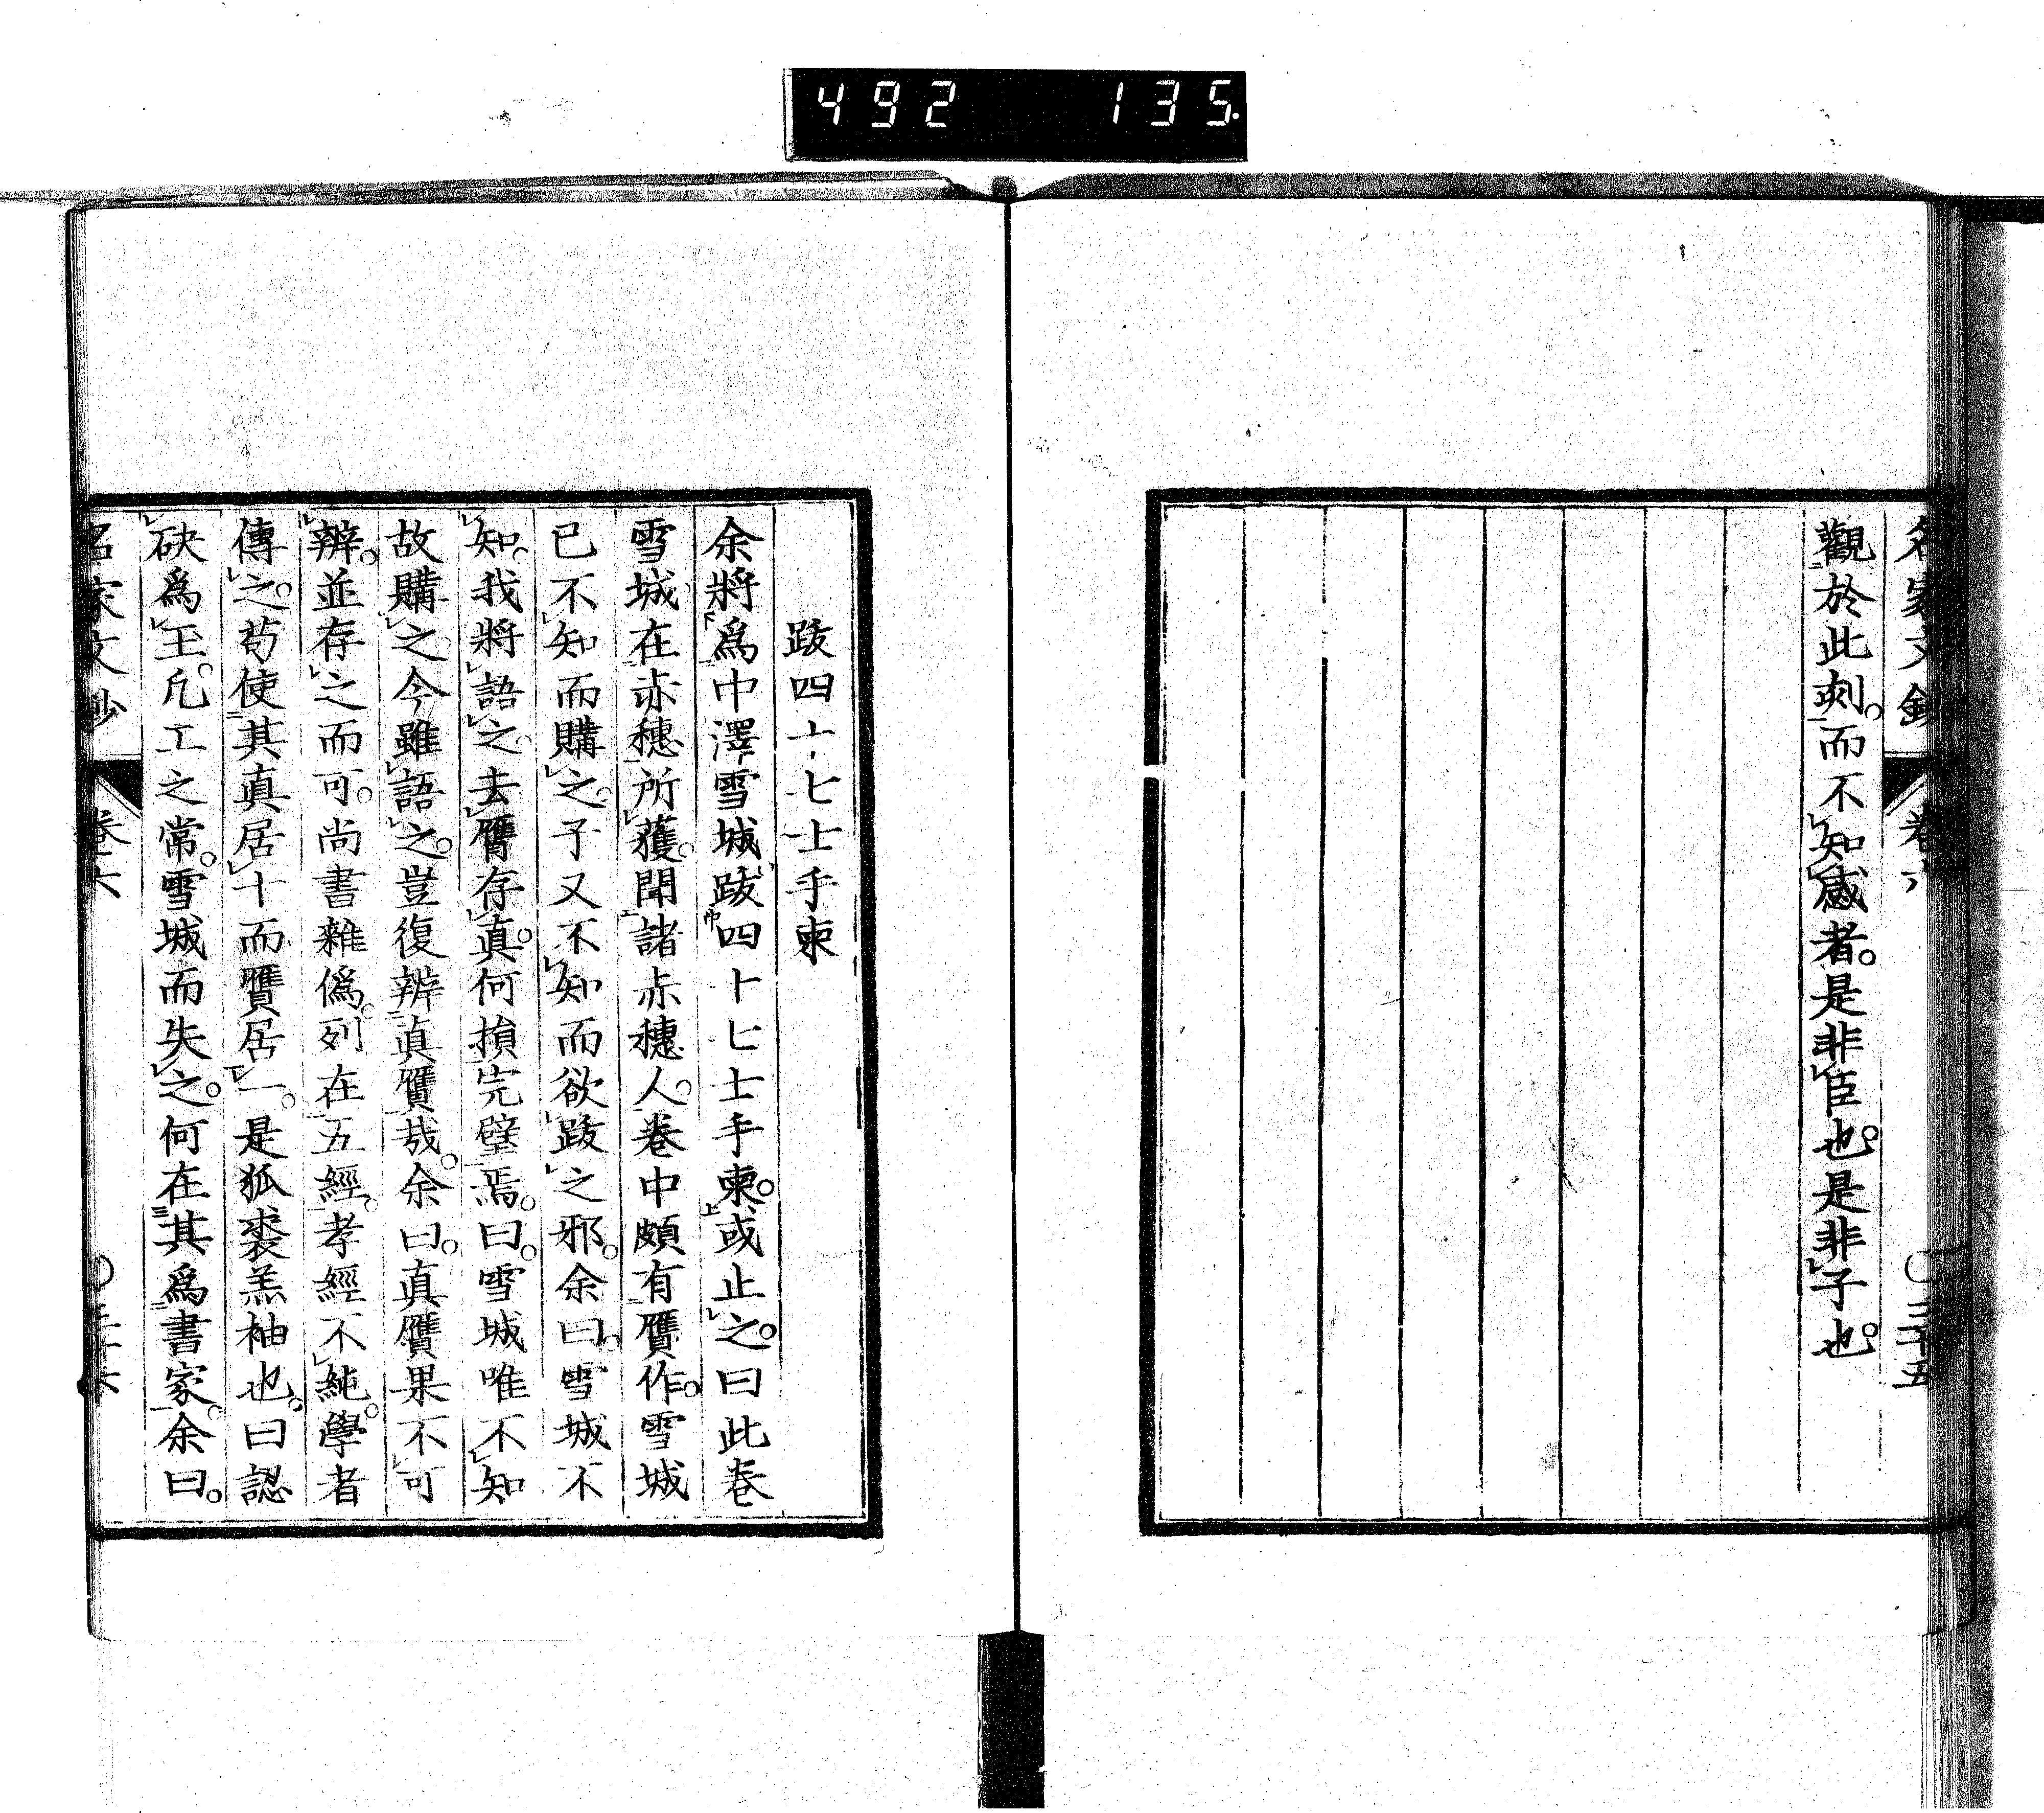 492 135.
名家文鈔 卷六 〇三十五
觀於此刻。而不知感者。是非臣也。是非子也。
跋四十七士手柬
余將爲中澤雪城跋四十七士手柬。或止之。曰此卷
雪城在赤穗所獲。聞諸赤穗人。卷中頗有贋作。雪城
已不知而購之。予又不知而欲跋之邪。余曰。雪城不
知。我將語之。去贋存真。何損完璧焉。曰。雪城唯不知
故購之。今雖語之。豈復辨真贋哉。余曰。真贋果不可
辨。並存之而可。尚書雜僞。列在五經。孝經不純。學者
傳之。苟使其真居十而贋居一。是狐裘羔袖也。曰認
砆爲玉。凡工之常。雪城而失之。何在其爲書家。余曰。
名家文鈔 卷六 〇三十六